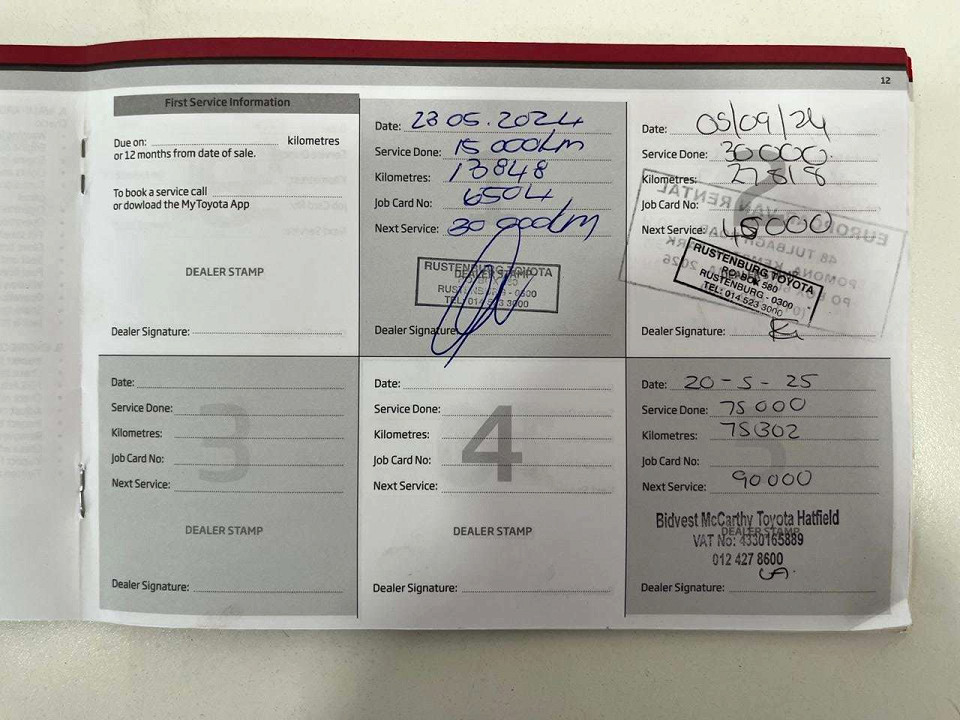 12
First Service Information
Due on: kilometres
or 12 months from date of sale.
To book a service call
or dowload the MyToyota App
DEALER STAMP
Dealer Signature:
Date: 23 05.2024
Service Done: 15 000km
Kilometres: 13848
Job Card No: 6504
Next Service: 30 000km
RUSTENBURG TOYOTA
DEALER STAMP
RUSTENBURG - 0300
TEL: 014 523 3000
Dealer Signature:
Date: 05/09/24
Service Done: 30000.
Kilometres: 27818
Job Card No:
Next Service: 45000
VAN RENTAL
48 TULBAGH
POMONA, KEMP
RUSTENBURG TOYOTA
P.O. BOX 580
RUSTENBURG - 0300
TEL: 014 523 3000
Dealer Signature:
Date:
Service Done:
Kilometres:
Job Card No:
Next Service:
3
DEALER STAMP
Dealer Signature:
Date:
Service Done:
Kilometres:
Job Card No:
Next Service:
4
DEALER STAMP
Dealer Signature:
Date: 20-5-25
Service Done: 75000
Kilometres: 75302
Job Card No:
Next Service: 90000
Bidvest McCarthy Toyota Hatfield
DEALER STAMP
VAT No: 4330165889
012 427 8600
Dealer Signature: